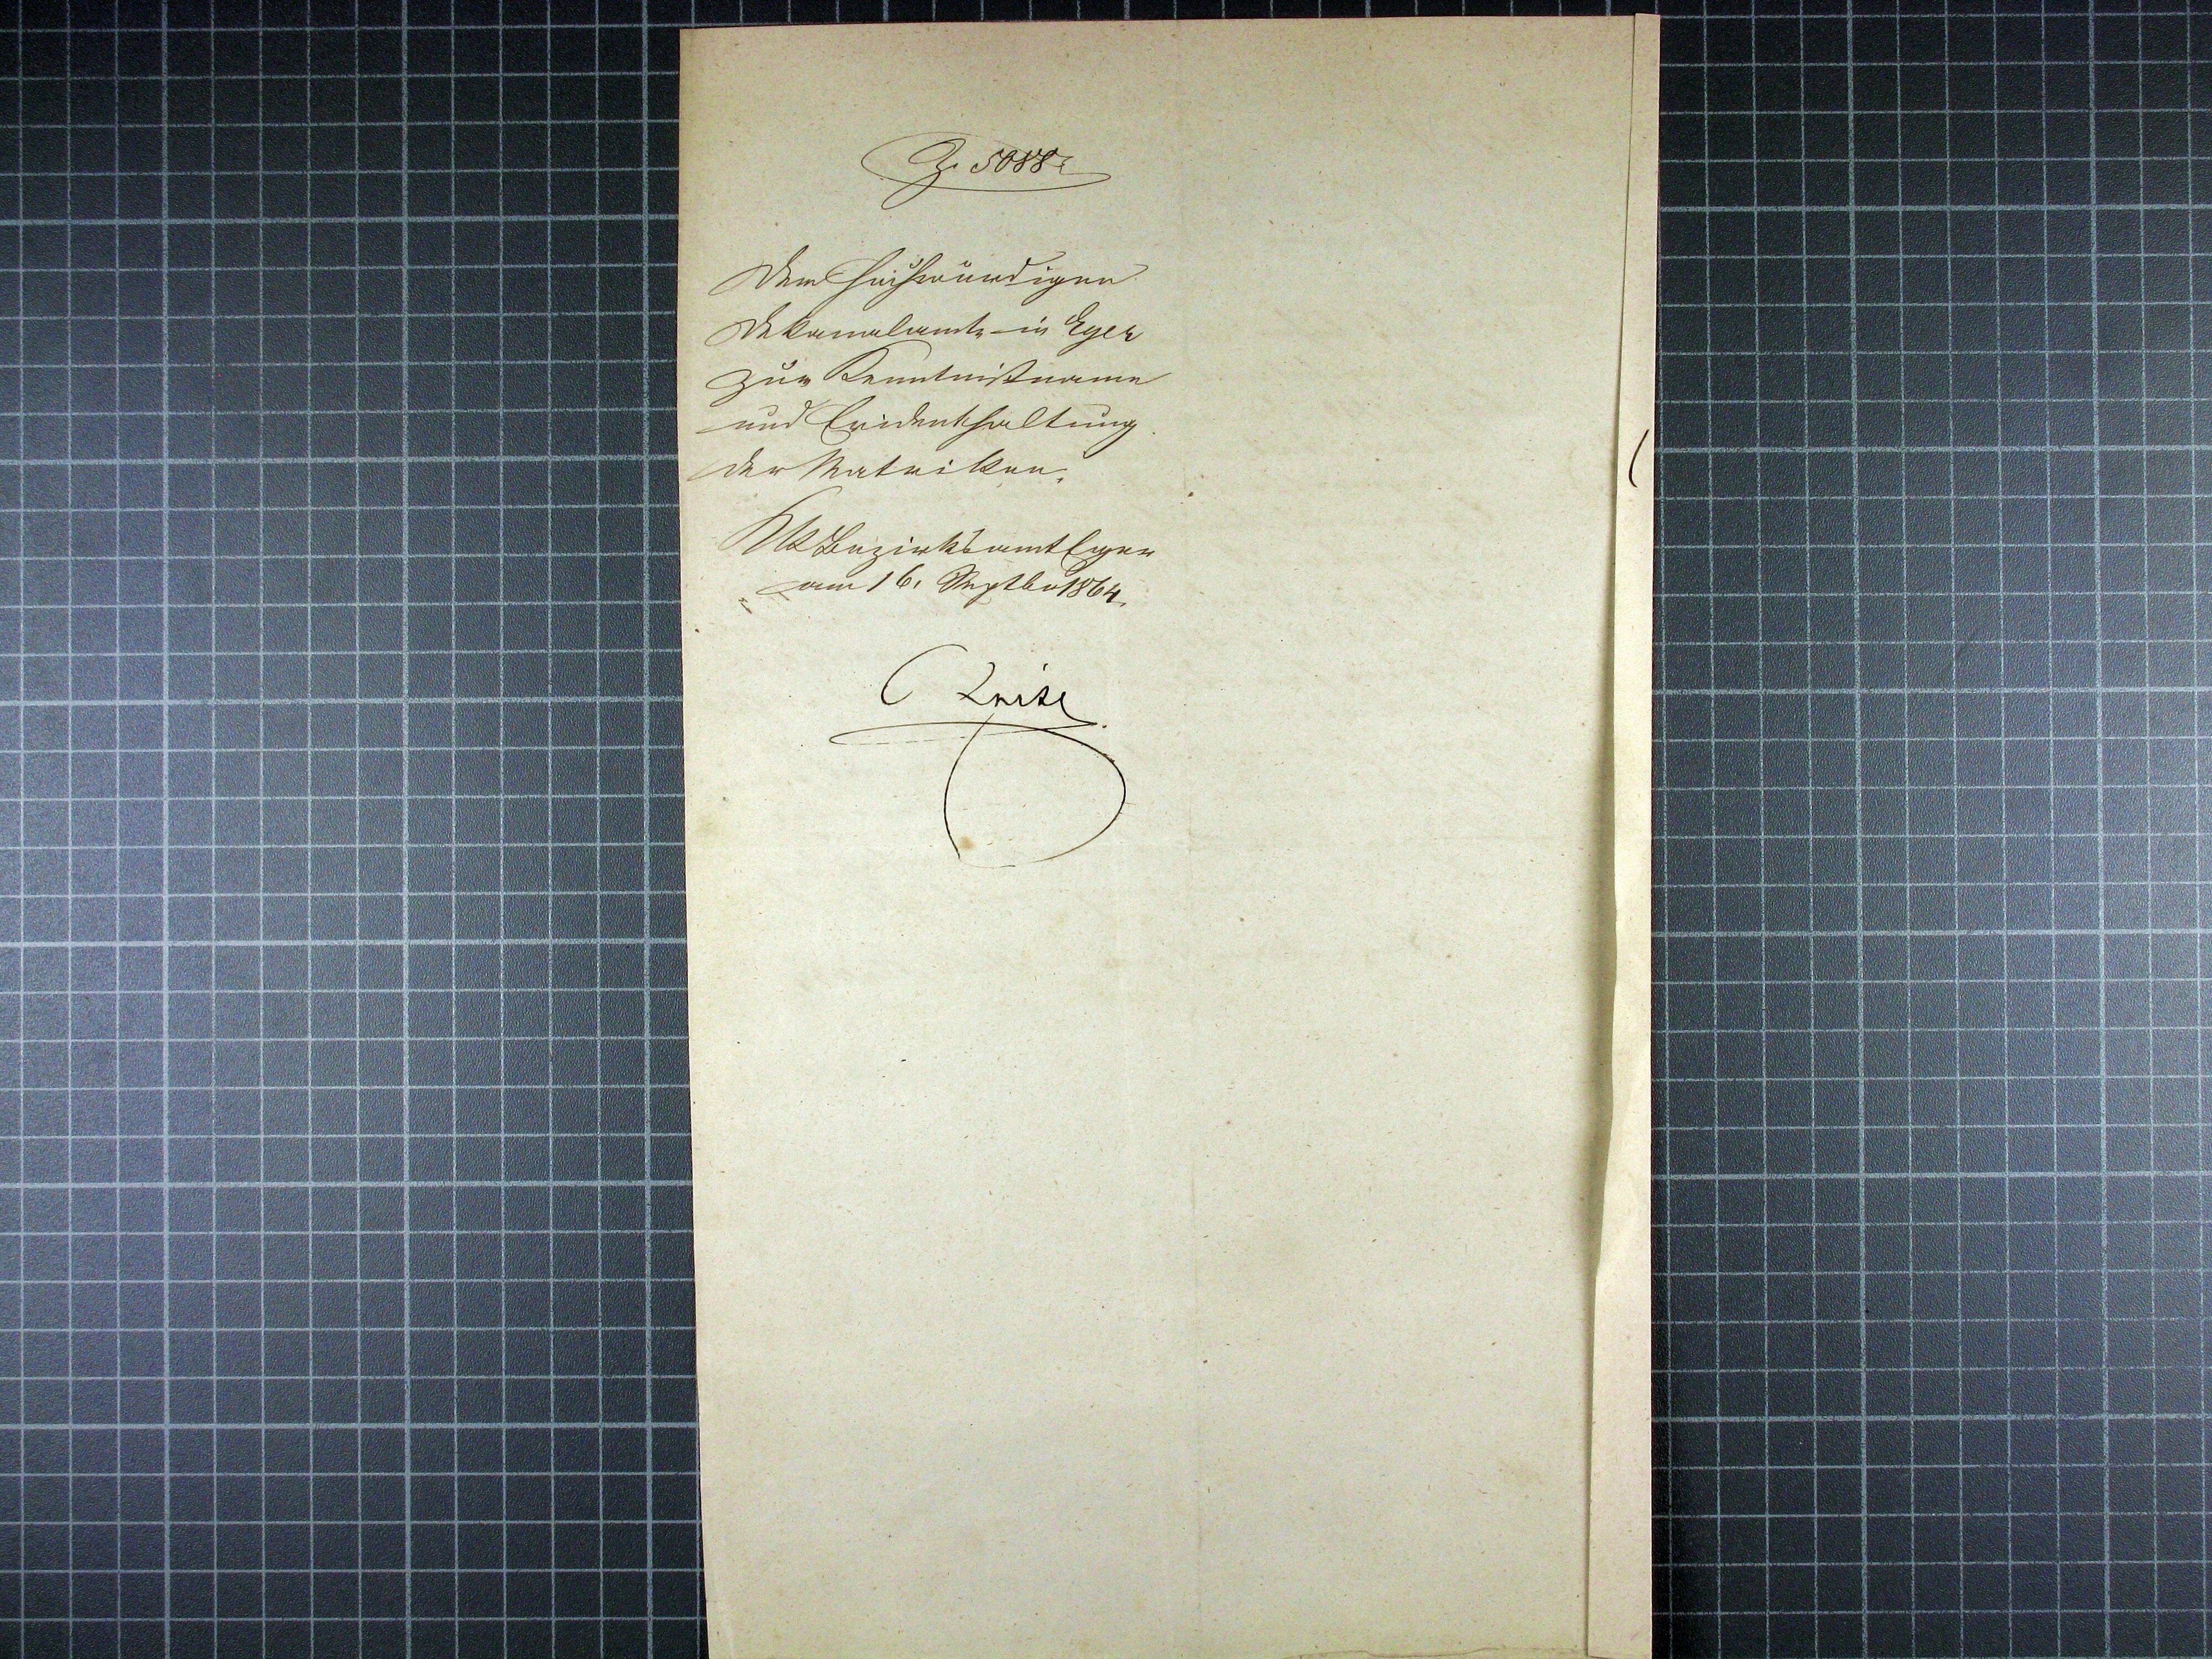 Z. 5088
Dem hochwürdigen
Dekanalamte in Eger
zur Kenntnißname
und Evidenthaltung
der Matriken.
KK Bezirksamt Eger
am 16. Septbr 1864.